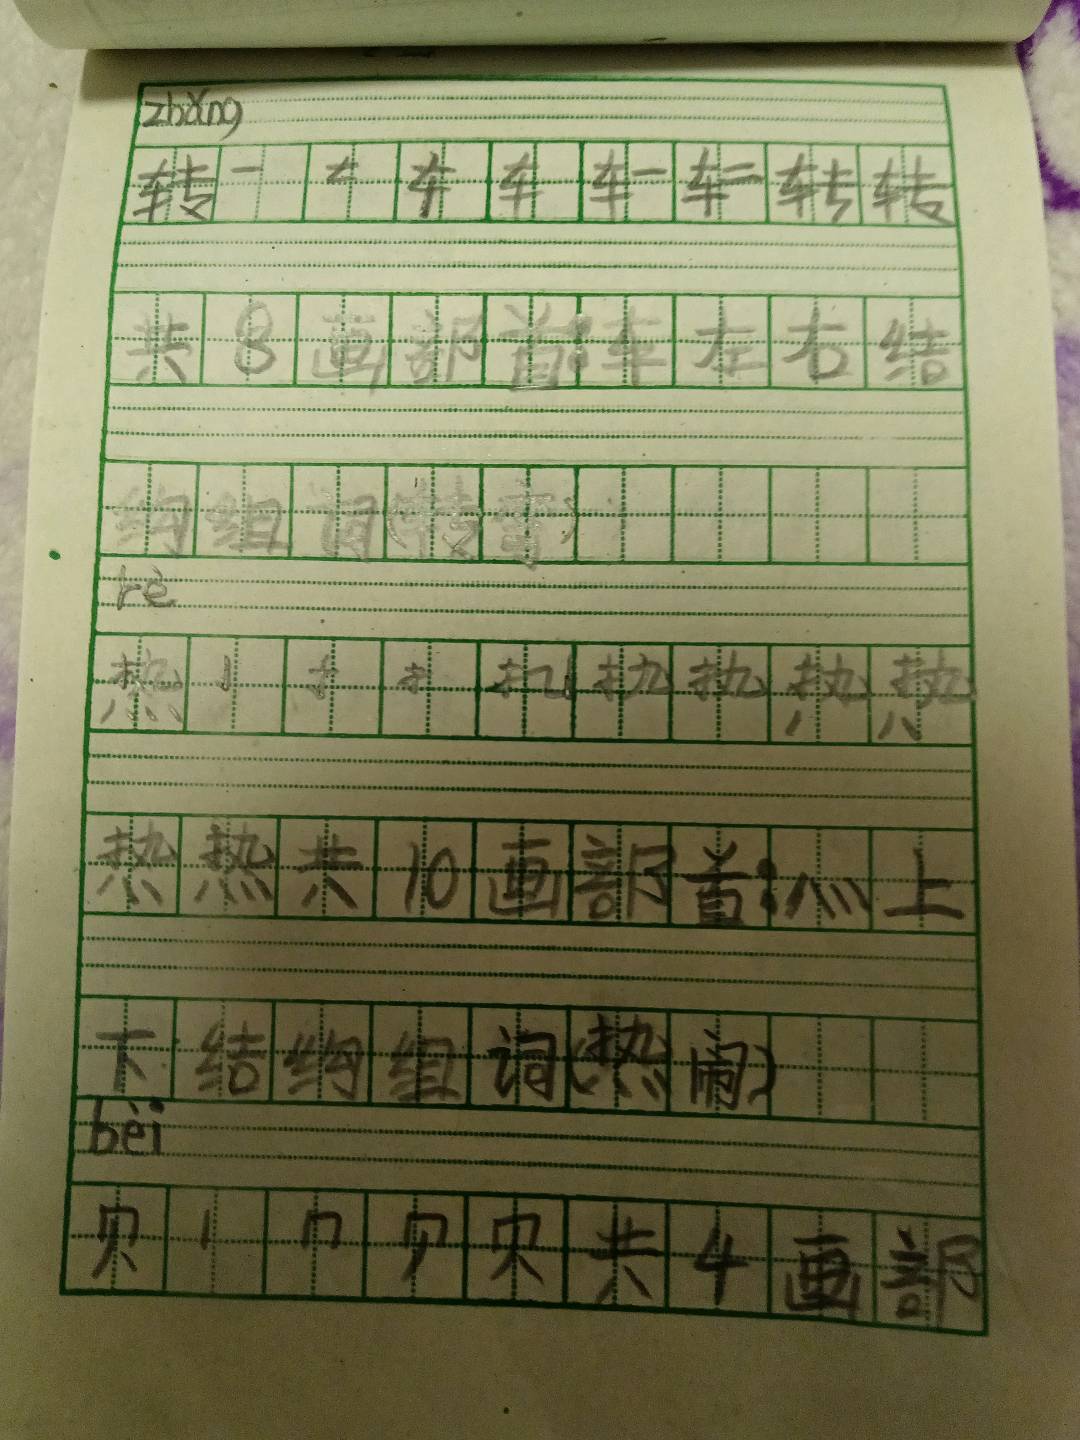 zhǎng
转 一 𠂇 车 车 车一 车二 转 转
共8画部首:车左右结
构组词(转弯)
rè
热 亅 扌 扌 扎 执 执 热 热
热热共10画部首:灬上
下结构组词(热闹)
bèi
贝 丨 冂 贝 贝 共4画部